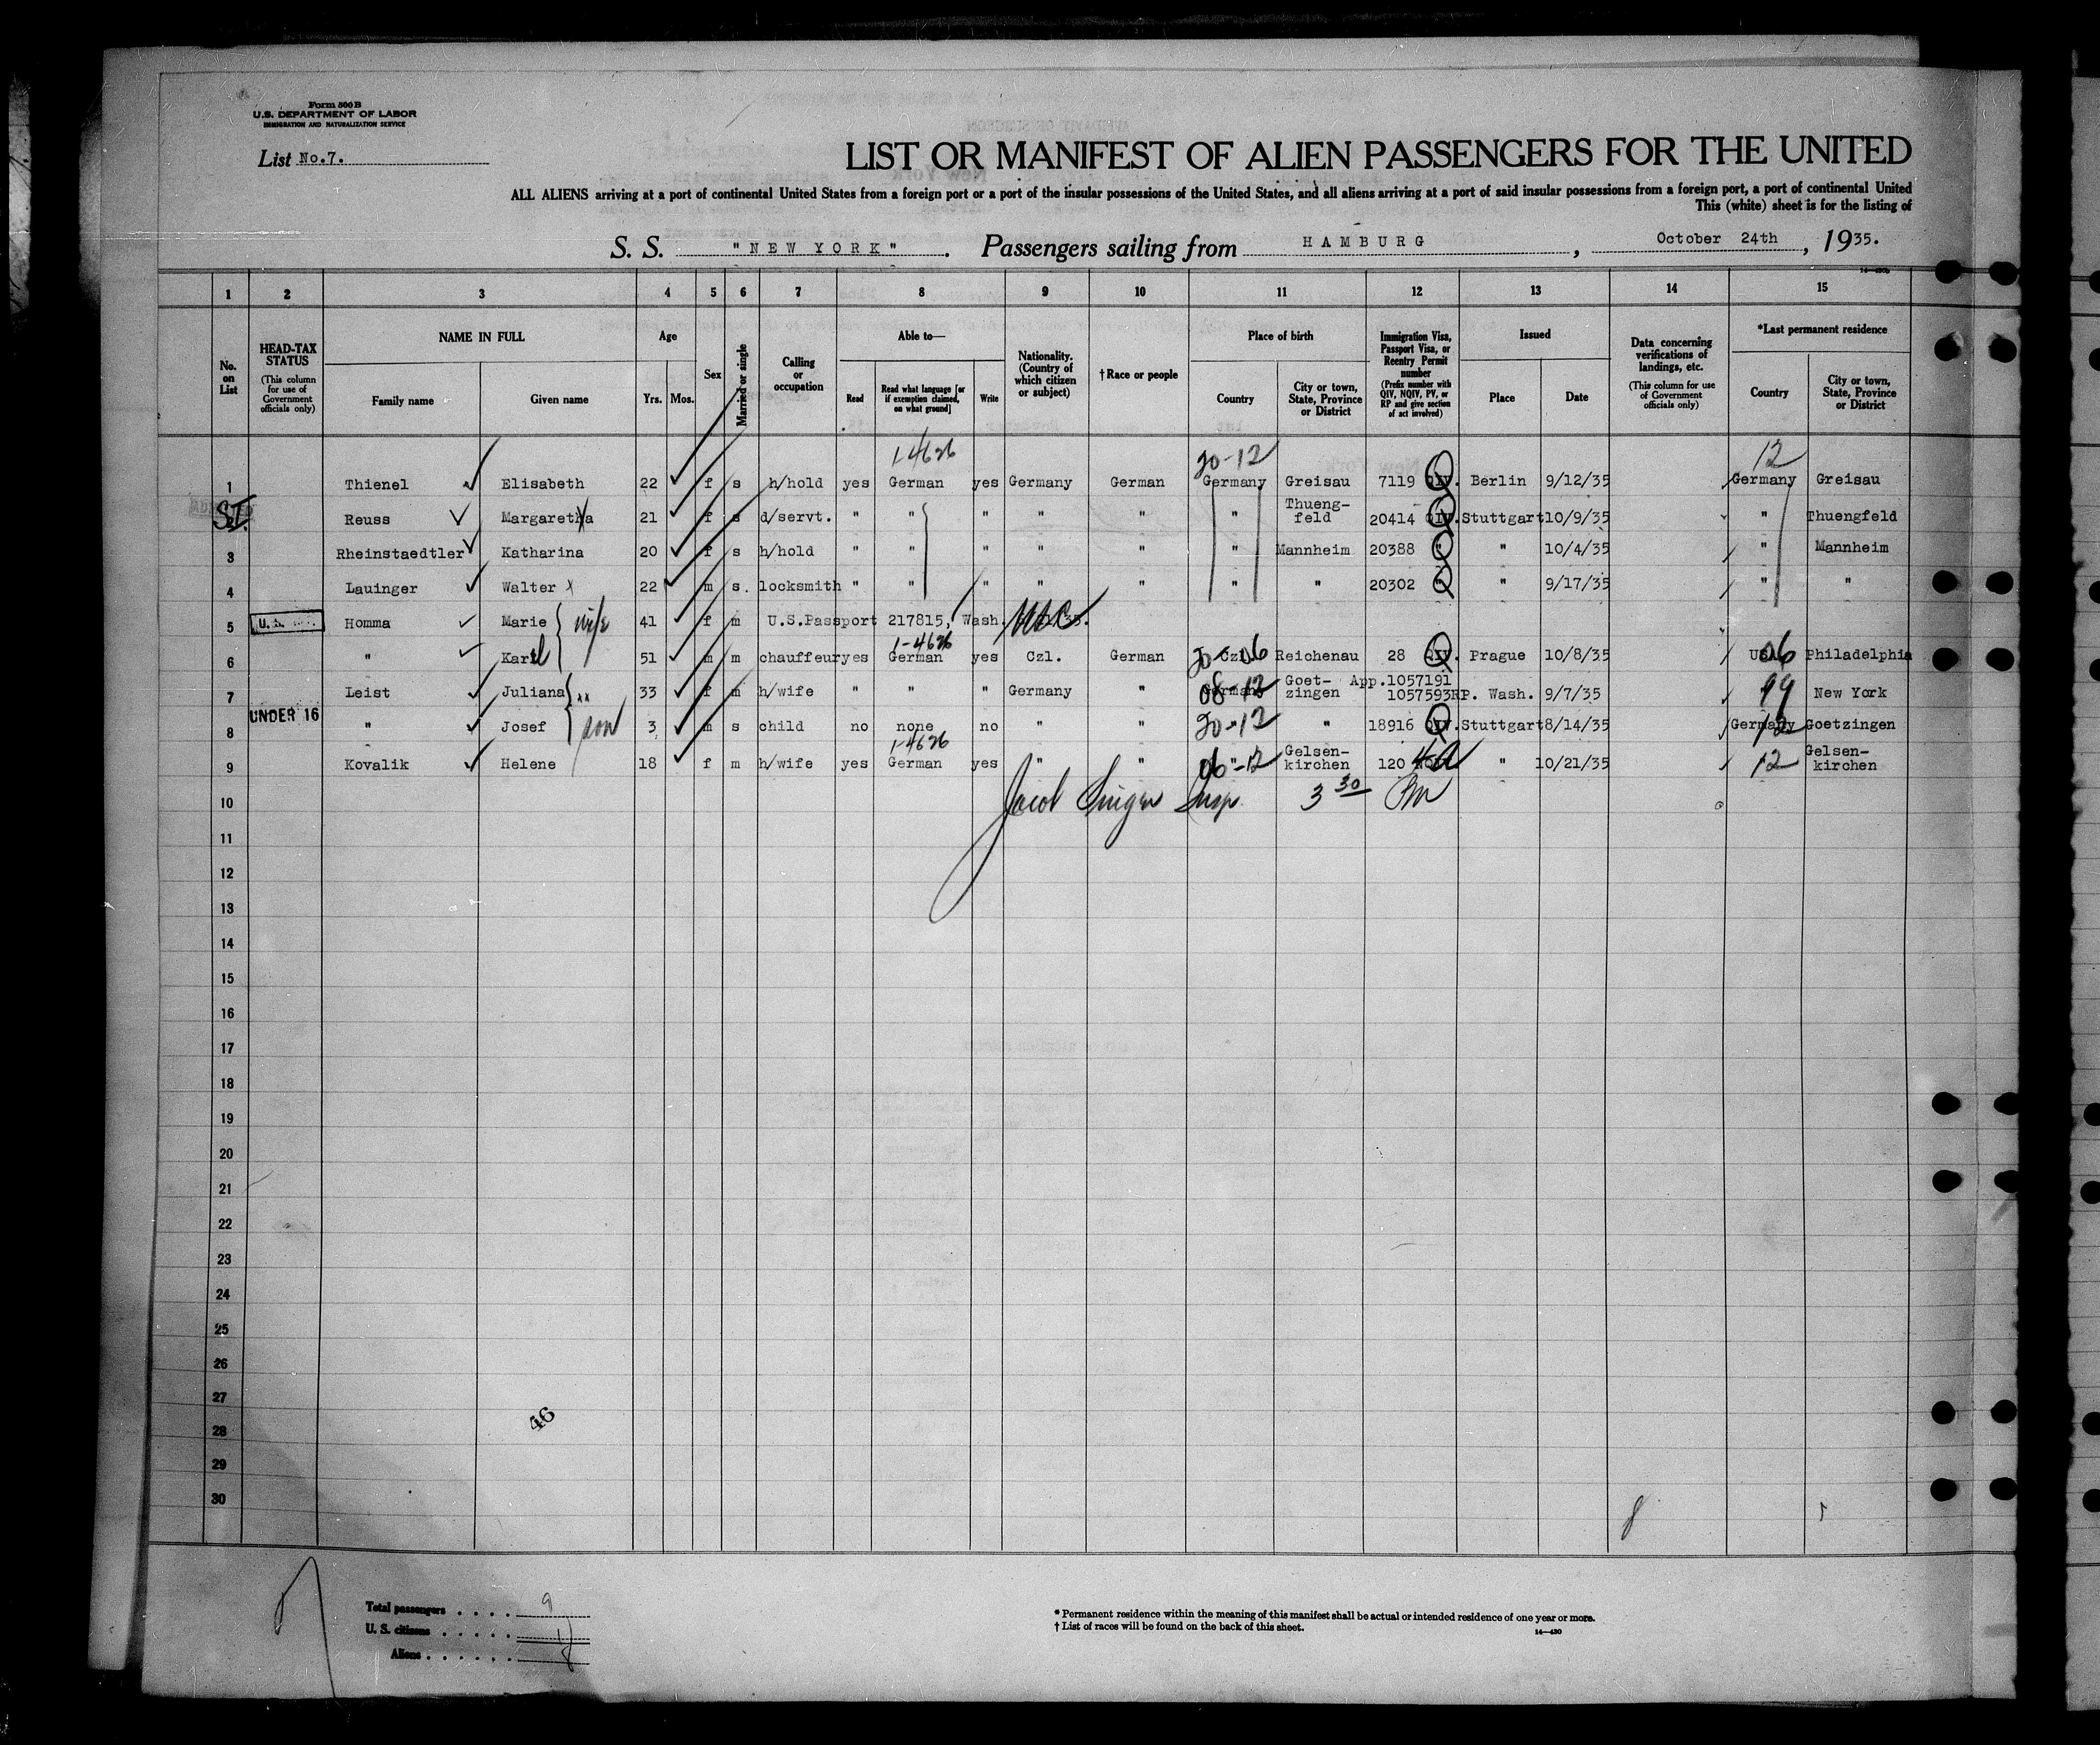 Form 500 B
U.S. DEPARTMENT OF LABOR
IMMIGRATION AND NATURALIZATION SERVICE
List No.7.
LIST OR MANIFEST OF ALIEN PASSENGERS FOR THE UNITED
ALL ALIENS arriving at a port of continental United States from a foreign port or a port of the insular possessions of the United States, and all aliens arriving at a port of said insular possessions from a foreign port, a port of continental United
This (white) sheet is for the listing of
S. S. "NEW YORK". Passengers sailing from HAMBURG, October 24th, 1935.
1 2 3 4 5 6 7 8 9 10 11 12 13 14 15
No. on List
HEAD-TAX STATUS (This column for use of Government officials only)
NAME IN FULL
Family name Given name
Age
Yrs. Mos.
Sex
Married or single
Calling or occupation
Able to—
Read Read what language [or if exemption claimed, on what ground] Write
Nationality. (Country of which citizen or subject)
†Race or people
Place of birth
Country City or town, State, Province or District
Immigration Visa, Passport Visa, or Reentry Permit number (Prefix number with QIV, NQIV, PV, or RP and give section of act involved)
Issued
Place Date
Data concerning verifications of landings, etc. (This column for use of Government officials only)
*Last permanent residence
Country City or town, State, Province or District
1-4626 20-12 12
1 Thienel Elisabeth 22 f s h/hold yes German yes Germany German Germany Greisau 7119 QIV. Berlin 9/12/35 Germany Greisau
SI Reuss Margaretha 21 f s d/servt. " " " " " " Thueng-feld 20414 QIV. Stuttgart 10/9/35 " Thuengfeld
3 Rheinstaedtler Katharina 20 f s h/hold " " " " " " Mannheim 20388 " " 10/4/35 " Mannheim
4 Lauinger Walter x 22 m s. locksmith " " " " " " " 20302 " " 9/17/35 " "
5 U.S. Homma Marie wife 41 f m U.S.Passport 217815, Wash.
1-4626
6 " Karel 51 m m chauffeur yes German yes Czl. German 20-06 Czl. Reichenau 28 QIV. Prague 10/8/35 USA 06 Philadelphia
7 Leist Juliana 33 f m h/wife " " " Germany " 08-12 Germany Goet-zingen App.1057191 1057593RP. Wash. 9/7/35 99 New York
UNDER 16
8 " Josef son 3 m s child no none no " " 20-12 " " 18916 QIV. Stuttgart 8/14/35 Germany 12 Goetzingen
1-4626
9 Kovalik Helene 18 f m h/wife yes German yes " " 06-12 " Gelsen-kirchen 120 4a " 10/21/35 12 Gelsen-kirchen
10 Jacob Singer Insp. 3 30 PM
11
12
13
14
15
16
17
18
19
20
21
22
23
24
25
26
27
28
29
30
46
8
Total passengers . . . . 9
U. S. citizens . . . . . 1
Aliens . . . . . . 8
* Permanent residence within the meaning of this manifest shall be actual or intended residence of one year or more.
† List of races will be found on the back of this sheet.
14—430